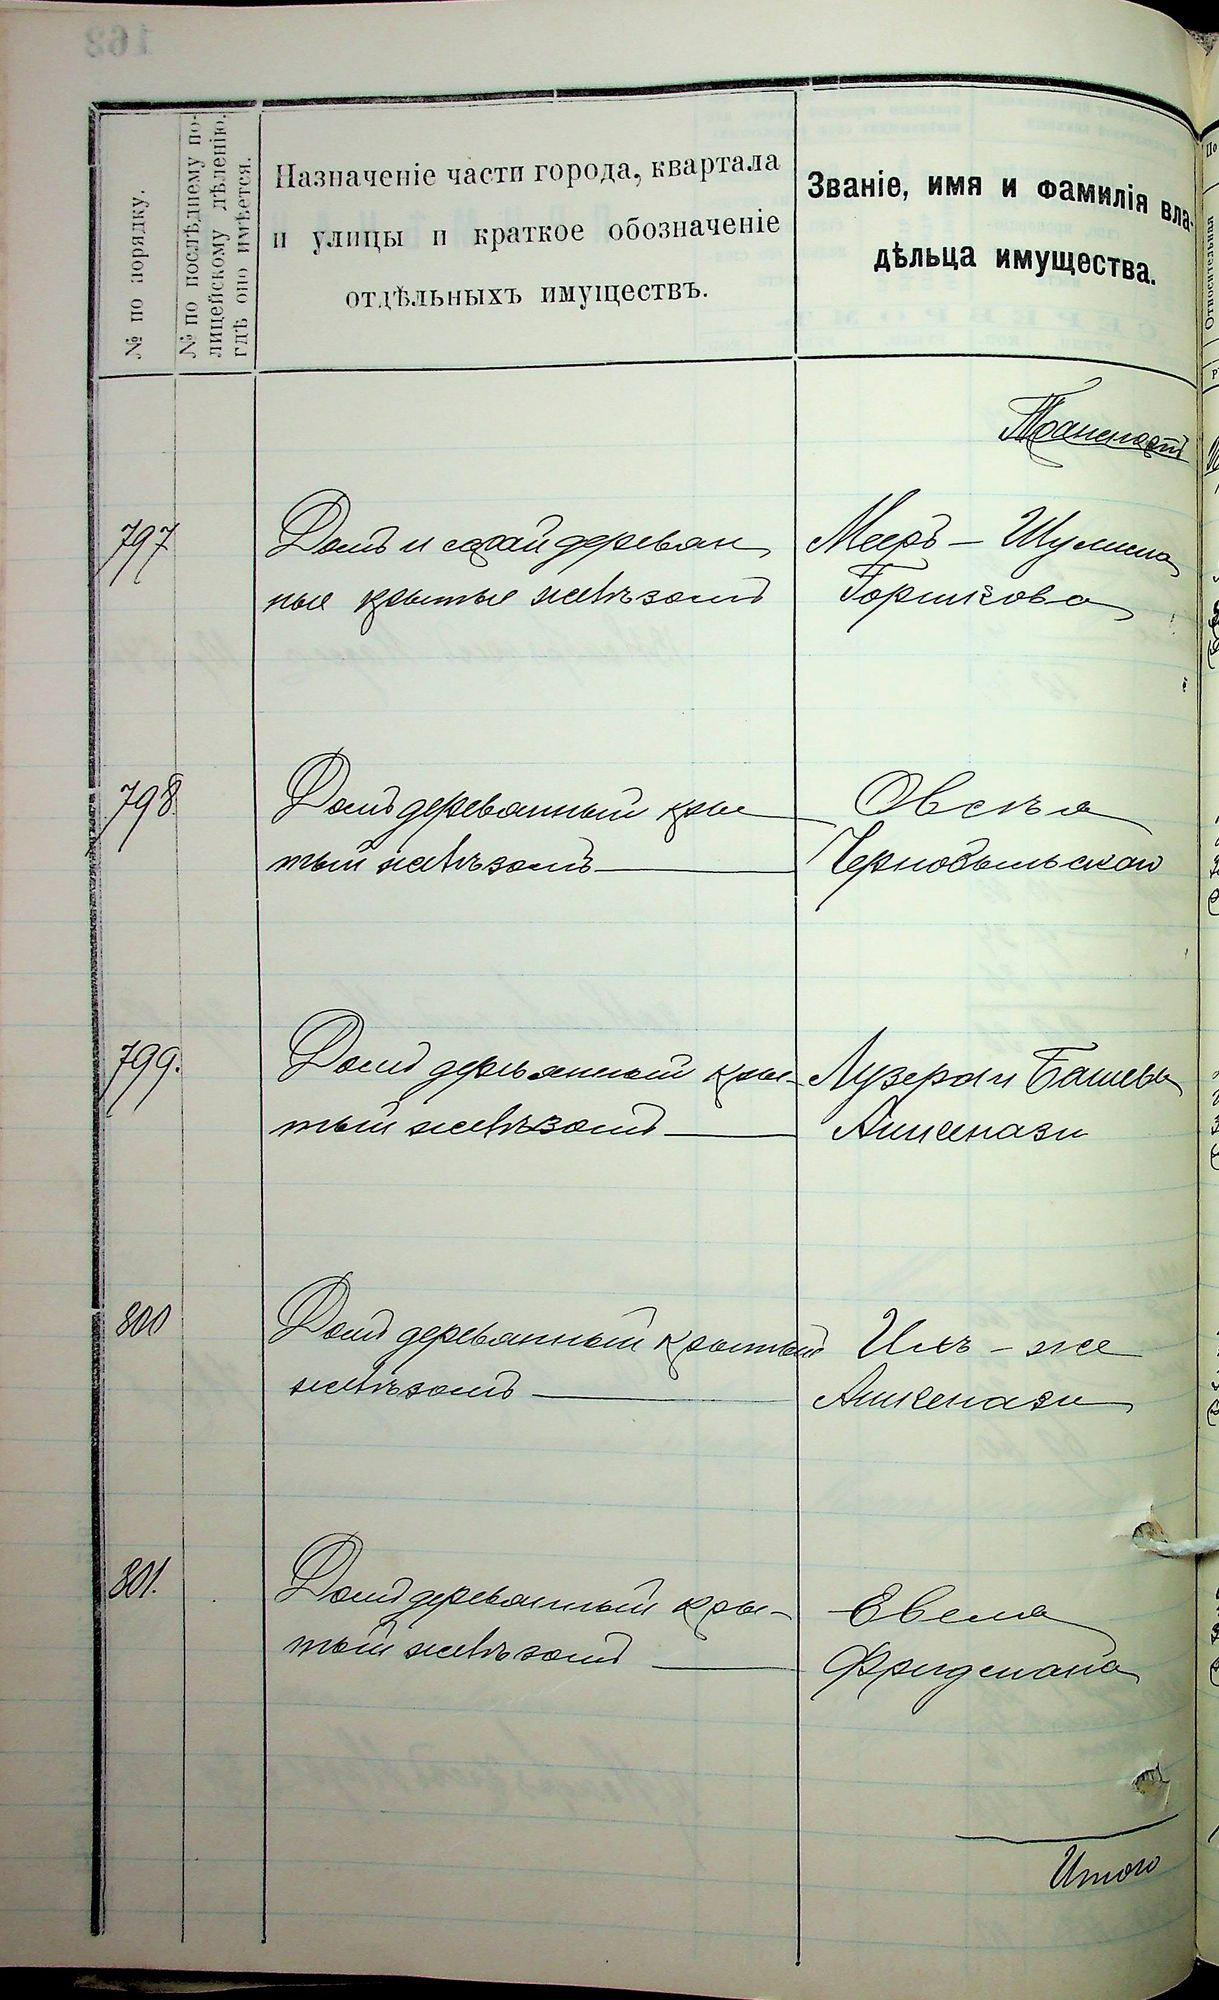 № по порядку.
№ по послѣднему по-
лицейскому дѣленію.
гдѣ оно имѣется.
Назначеніе части города, квартала
и улицы и краткое обозначеніе
отдѣльныхъ имуществъ.
Званіе, имя и фамилія вла-
дѣльца имущества.
Транспортъ
797
Домъ и сарай деревян
ные крытые желѣзомъ
Мееръ - Шулима
Горшкова
798.
Домъ деревянный кры
тый желѣзомъ
Овсѣя
Чернобыльскаго
799.
Домъ деревянный кры-
тый желѣзомъ
Лузера и Башевы
Ашкенази
800
Домъ деревянный крытый
желѣзомъ
Ихъ - же
Ашкенази
801.
Домъ деревянный кры-
тый желѣзомъ
Евеля
Фридмана
Итого